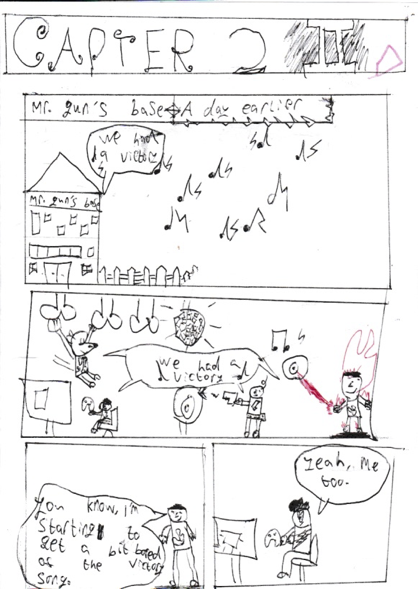 CAPTER 2
Mr. gun's base A day earlier
we had
a victory
Mr. gun's base
we had a
victory
You know, I'm
Starting to
get a bit bored
of the victory
Song.
yeah, me
too.